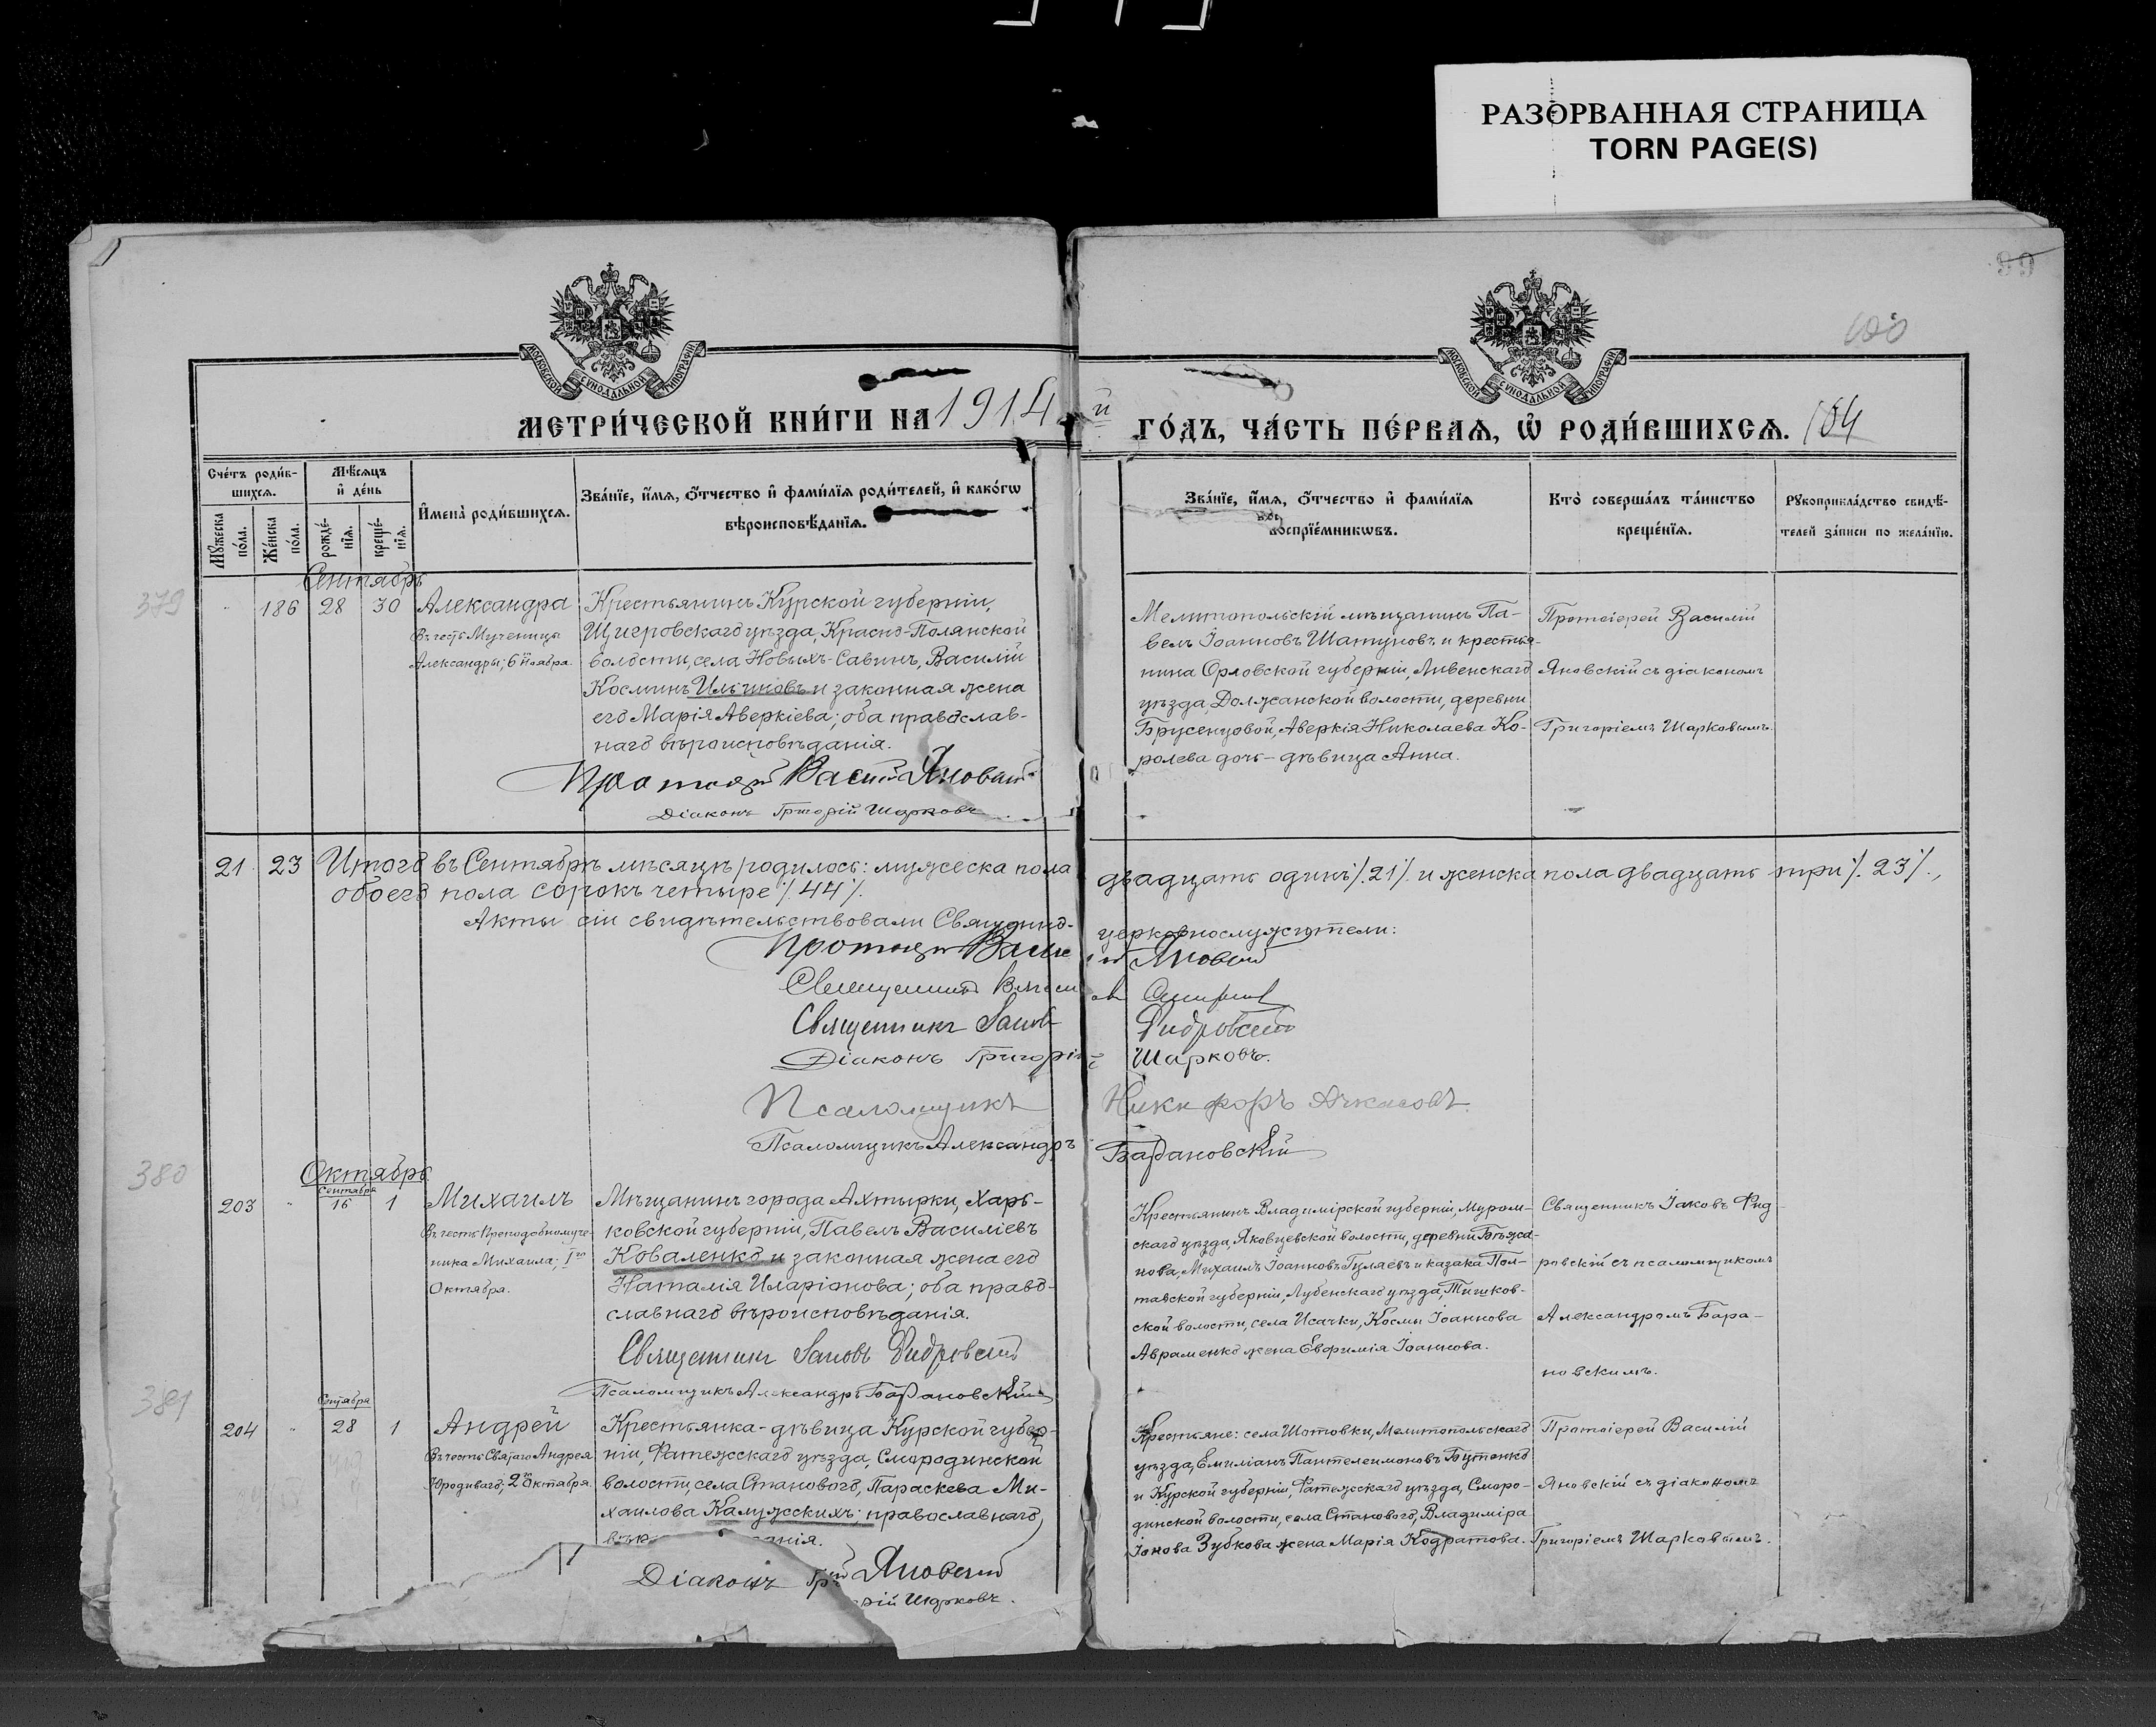 РАЗОРВАННАЯ СТРАНИЦА
TORN PAGE(S)
99
100
МОСКОВСКОЙ СѴНОДАЛЬНОЙ ТИПОГРАФІИ
МОСКОВСКОЙ СѴНОДАЛЬНОЙ ТИПОГРАФІИ
МЕТРИ́ЧЕСКОЙ КНИ́ГИ НА 1914 й ГО́ДЪ, ЧА́СТЬ ПЕ́РВАѦ, Ѡ҆ РОДИ́ВШИХСѦ. 104
Сче́тъ роди́в-
шихсѧ.
Мꙋ́жеска по́ла.
Же́нска по́ла.
Мѣ́сѧцъ
и҆ де́нь
рожде́-
нїѧ.
креще́-
нїѧ.
И҆мена̀ роди́вшихсѧ.
Зва́нїе, и҆́мѧ, ѻ҆́тчество и҆ фами́лїѧ роди́телей, и҆ како́гѡ
вѣроисповѣ́данїѧ.
Зва́нїе, и҆́мѧ, ѻ҆́тчество и҆ фами́лїѧ
воспрїе́мникѡвъ.
Кто̀ соверша́лъ та́инство
креще́нїѧ.
Рꙋкоприкла́дство свидѣ́-
телей за́писи по жела́нїю.
Сентябрь
379
186 28 30
Александра
Въ честь Мученицы
Александры, 6 Ноября.
Крестьянинъ Курской губерніи,
Щигровскаго уѣзда, Красно-Полянской
волости, села Новыхъ-Савинъ, Василій
Косминъ Ильиновъ и законная жена
его Марія Аверкіева; оба православ-
наго вѣроисповѣданія.
Протоіерей Василій Яновскій
Діаконъ Григорій Шарковъ
Мелитопольскій мѣщанинъ Па-
велъ Іоанновъ Шатуновъ и крестья-
нина Орловской губерніи, Ливенскаго
уѣзда, Должанской волости, деревни
Брусенцовой, Аверкія Николаева Ко-
ролева дочь - дѣвица Анна.
Протоіерей Василій
Яновскій съ діакономъ
Григоріемъ Шарковымъ.
21 23 Итого въ Сентябрѣ мѣсяцѣ родилось: мужеска пола двадцать одинъ /. 21 /. и женска пола двадцать три /. 23 /.,
обоего пола сорокъ четыре /. 44 /.
Акты сіи свидѣтельствовали Священно-церковнослужители:
Протоіерей Василій Яновскій
Священникъ
Священникъ Іаковъ Фидровскій
Діаконъ Григорій Шарковъ.
Псаломщикъ Никифоръ
Псаломщикъ Александръ Барановскій
Октябрь
380
203 Сентября 16 1
Михаилъ
Въ честь Преподобномуче-
ника Михаила; 1го
Октября.
Мѣщанинъ города Ахтырки, Харь-
ковской губерніи, Павелъ Василіевъ
Коваленко и законная жена его
Наталія Иларіонова; оба право-
славнаго вѣроисповѣданія.
Священникъ Іаковъ Фидровскій
Псаломщикъ Александръ Барановскій
Крестьянинъ Владимірской губерніи, Муром-
скаго уѣзда, Яковцевской волости, деревни Бѣжа-
нова, Михаилъ Іоанновъ Гуляевъ и казака Пол-
тавской губерніи, Лубенскаго уѣзда, Тишков-
ской волости, села Исачки, Космы Іоаннова
Авраменко жена Евфимія Іоаннова.
Священникъ Іаковъ Фид-
ровскій съ псаломщикомъ
Александромъ Бара-
новскимъ.
381
204 Сентября 28 1
Андрей
Въ честь Святаго Андрея
Юродиваго, 2го Октября.
Крестьянка-дѣвица Курской губер-
ніи, Фатежскаго уѣзда, Смородинской
волости, села Станового, Параскева Ми-
хаилова Калужскихъ; православнаго
Яновскій
Діаконъ Гри
рій Шарковъ.
Крестьяне: села Шотовки, Мелитопольскаго
уѣзда, Емиліанъ Пантелеимоновъ Бутенко
и Курской губерніи, Фатежскаго уѣзда, Сморо-
динской волости, села Становаго, Владиміра
Іонова Зубкова жена Марія Кодратова.
Протоіерей Василій
Яновскій съ діакономъ
Григоріемъ Шарковымъ.